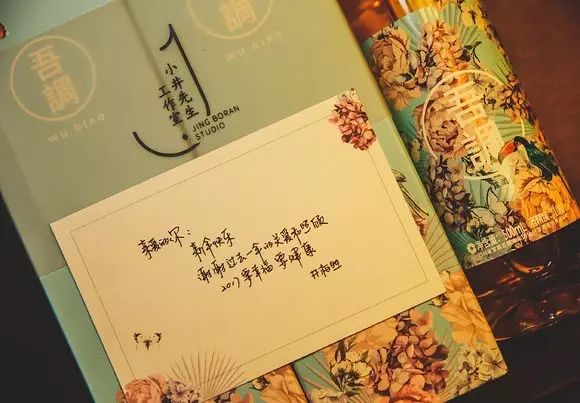 吾調
WU DIAO
小井先生
工作室
JING BORAN
STUDIO
WU DIAO
亲爱的
新年快乐
谢谢过去一年的关爱和照顾
2017要幸福 要健康
井柏然
吾調
300mL